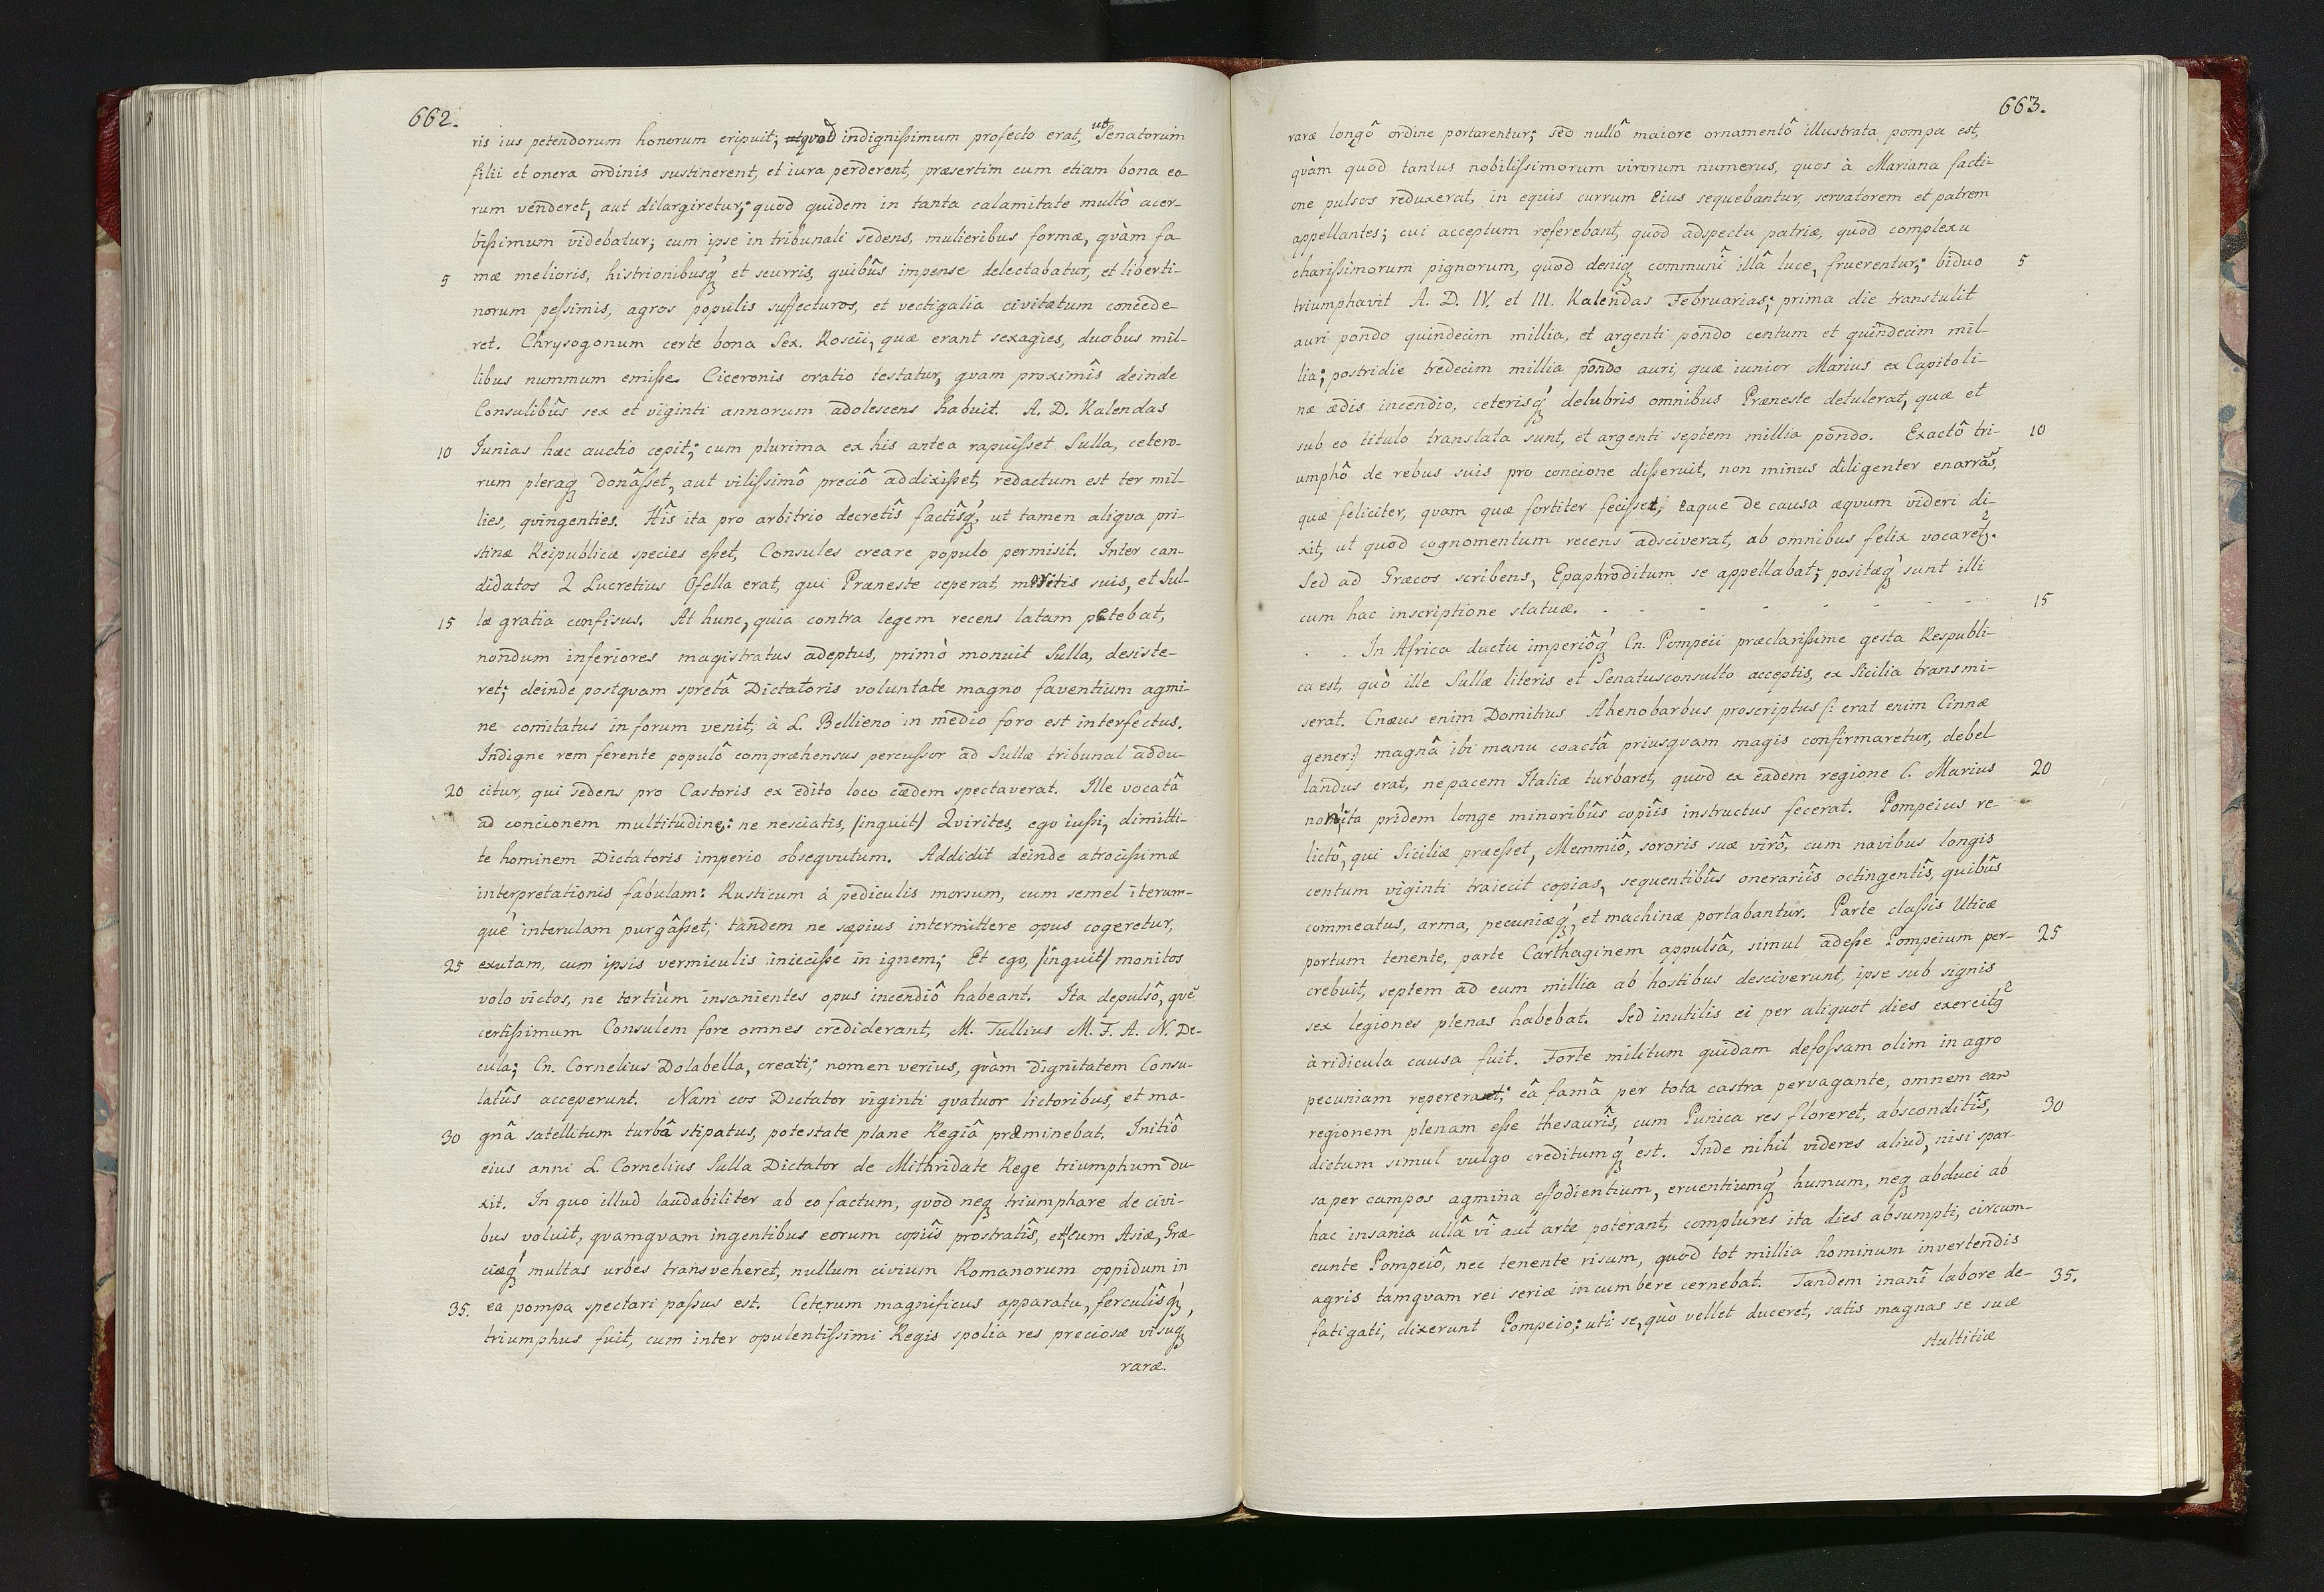 662.
ris ius petendorum honorum eripuit; quod indignißimum profecto erat, ut Senatorum
filii et onera ordinis sustinerent, et iura perderent, præsertim cum etiam bona eo-
rum venderet, aut dilargiretur; quod quidem in tanta calamitate multò acer-
bißimum videbatur; cum ipse in tribunali sedens, mulieribus formæ, quàm fa
5 mæ melioris, histrionibusq́ꝫ et scurris, quibûs impense delectabatur, et liberti-
norum peßimis, agros populis suffecturos, et vectigalia civitatum concede-
ret. Chrysogonum certe bona Sex. Roscii, quæ erant sexagies, duobus mil-
libus nummum emiße. Ciceronis oratio testatur, quam proximîs deinde
Consulibûs sex et viginti annorum adolescens habuit. A. D. Kalendas
10 Iunias hæc auctio cepit; cum plurima ex his antea rapuißet Sulla, cetero-
rum pleraqꝫ donâßet, aut vilißimô preciô addixißet, redactum est ter mil-
lies, quingenties. Hîs ita pro arbitrio decretîs factîsq́ꝫ, ut tamen aliqua pri-
stinæ Reipublicæ species eßet, Consules creare populo permisit. Inter can-
didatos Q Lucretius Ofella erat, qui Præneste ceperat, meritis suis, et Sul-
15 læ gratia confisus. At hunc, quia contra legem recens latam petebat,
nondum inferiores magistratus adeptus, primò monuit Sulla, desiste-
ret; deinde postquam spretâ Dictatoris voluntate magno faventium agmi-
ne comitatus in forum venit, à L. Bellieno in medio foro est interfectus.
Indigne rem ferente populô compræhensus percußor ad Sullæ tribunal addu-
20 citur, qui sedens pro Castoris ex edito loco cædem spectaverat. Ille vocatâ
ad concionem multitudine: ne nesciatis, /inquit/ Quirites, ego iußi, dimitti-
te hominem Dictatoris imperio obsequutum. Addidit deinde atrocißimæ
interpretationis fabulam: Rusticum à pediculis morsum, cum semel iterum-
que interulam purgâßet, tandem ne sæpius intermittere opus cogeretur,
25 exutam, cum ipsis vermiculis iniiciße in ignem; Et ego, /inquit/ monitos
volo victos, ne tertiùm insanientes opus incendiô habeant. Ita depulsô, quē
certißimum Consulem fore omnes crediderant, M. Tullius M. F. A. N. De-
cula; Cn. Cornelius Dolabella, creati; nomen verius, quàm dignitatem Consu-
latûs acceperunt. Nam eos Dictator viginti quatuor lictoribus, et ma-
30 gnâ satellitum turbâ stipatus, potestate plane Regiâ præminebat. Initiô
eius anni L. Cornelius Sulla Dictator de Mithridate Rege triumphum du-
xit. In quo illud laudabiliter ab eo factum, quod neqꝫ triumphare de civi-
bus voluit, quamquam ingentibus eorum copiîs prostratîs, et, cum Asiæ, Græ-
ciæq́ꝫ multas urbes transveheret, nullum civium Romanorum oppidum in
35. ea pompa spectari paßus est. Ceterum magnificus apparatu, ferculîsq́ꝫ,
triumphus fuit, cum inter opulentißimi Regis spolia res preciosæ visuqꝫ
raræ.
663.
raræ longô ordine portarentur; sed nullô maiore ornamentô illustrata pompa est,
quàm quod tantus nobilißimorum virorum numerus, quos à Mariana facti-
one pulsos reduxerat, in equis currum eius sequebantur, servatorem et patrem
appellantes; cui acceptum referebant, quod adspectu patriæ, quod complexu
charißimorum pignorum, quod deniqꝫ communî illâ luce, fruerentur; biduo 5
triumphavit A. D. IV. et III. Kalendas Februarias; prima die transtulit
auri pondo quindecim millia, et argenti pondo centum et quindecim mil-
lia; postridie tredecim millia pondo auri, quæ iunior Marius ex Capitoli-
næ ædis incendio, ceterisq́ꝫ delubris omnibus Præneste detulerat, quæ et
sub eo titulo translata sunt, et argenti septem millia pondo. Exactô tri- 10
umphô de rebus suis pro concione dißeruit, non minus diligenter enarrās,
quæ feliciter, quam quæ fortiter fecißet; eaque de causa æquum videri di-
xit, ut quod cognomentum recens adsciverat, ab omnibus felix vocaretꝫ.
Sed ad Græcos scribens, Epaphroditum se appellabat; positæq́ꝫ sunt illi
cum hac inscriptione statuæ. - - - - - - - 15
. . In Africa ductu imperiôq́ꝫ Cn. Pompeii præclarißime gesta Respubli-
ca est, quò ille Sullæ literis et Senatusconsulto acceptis, ex Sicilia transmi-
serat. Cnæus enim Domitius Ahenobarbus proscriptus /: erat enim Cinnæ
gener:/ magnâ ibi manu coactâ priusquam magis confirmaretur, debel
landus erat, ne pacem Italiæ turbaret, quod ex eadem regione C. Marius 20
non ita pridem longe minoribûs copiîs instructus fecerat. Pompeius re-
lictô, qui Siciliæ præeßet, Memmiô, sororis suæ virô, cum navibus longis
centum viginti traiecit copias, sequentibûs onerariîs octingentîs, quibûs
commeatus, arma, pecuniæq́ꝫ, et machinæ portabantur. Parte claßis Uticæ
portum tenente, parte Carthaginem appulsâ, simul adeße Pompeium per- 25
crebuit, septem ad eum millia ab hostibus desciverunt, ipse sub signis
sex legiones plenas habebat. Sed inutilis ei per aliquot dies exercitꝫ
à ridicula causa fuit. Forte militum quidam defoßam olim in agro
pecuniam repererat; eâ famâ per tota castra pervagante, omnem eam
regionem plenam eße thesaurîs, cum Punica res floreret, absconditîs, 30
dictum simul vulgo creditumq́ꝫ est. Inde nihil videres aliud, nisi spar-
sa per campos agmina effodientium, eruentiumq́ꝫ humum, neqꝫ abduci ab
hac insania ullâ vî aut arte poterant, complures ita dies absumpti, circum-
eunte Pompeiô, nec tenente risum, quod tot millia hominum invertendis
agris tamquam rei seriæ incumbere cernebat. Tandem inanî labore de- 35.
fatigati, dixerunt Pompeio; uti se, quò vellet duceret, satis magnas se suæ
stultitiæ